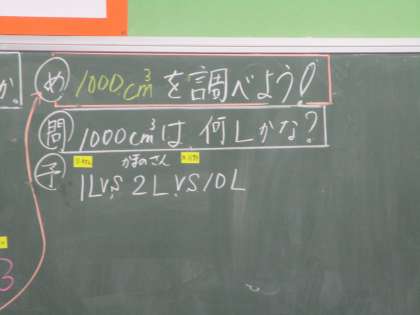 か.
め 1000cm³を調べよう!
問 1000cm³は何Lかな?
かまのさん
予 1L VS 2L VS 10L
3